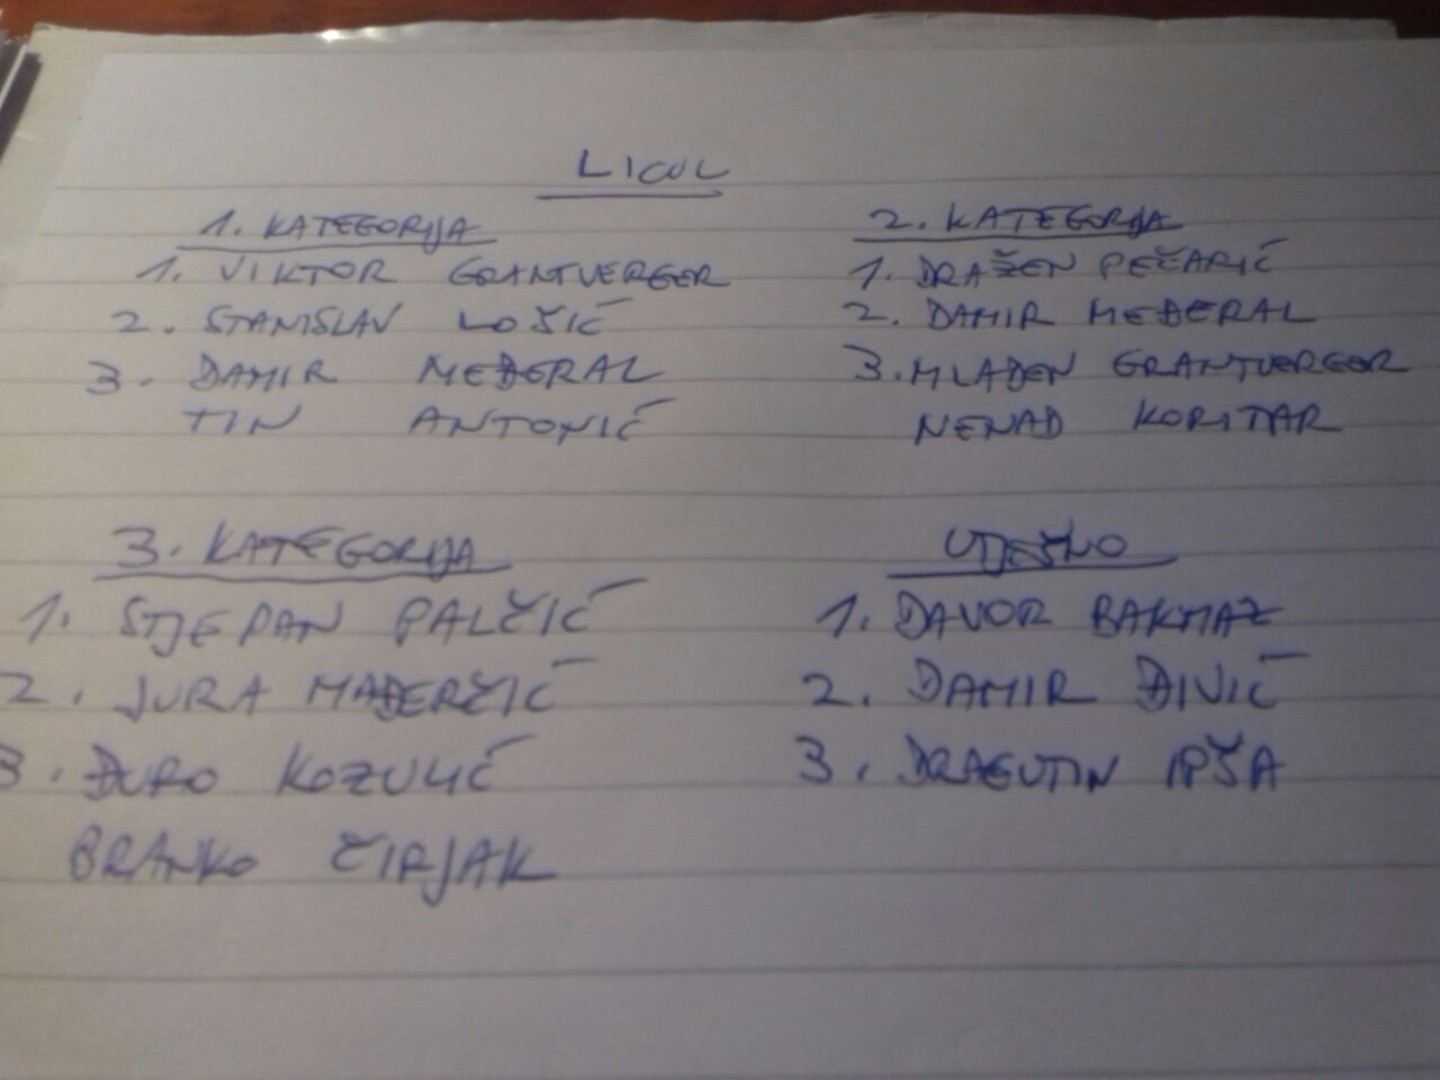 LICUL
1. KATEGORIJA
1. VIKTOR GRANTVERGER
2. STANISLAV LOŠIĆ
3. DAMIR MEĐERAL
TIN ANTONIĆ
2. KATEGORIJA
1. DRAŽEN PEČARIĆ
2. DAMIR MEĐERAL
3. MLADEN GRANTVERGER
NENAD KORITAR
3. KATEGORIJA
1. STJEPAN PALČIĆ
2. JURA MAĐERČIĆ
3. ĐURO KOZULIĆ
BRANKO ČIRJAK
UTJEŠNO
1. DAVOR BAKMAZ
2. DAMIR ĐIVIĆ
3. DRAGUTIN IPŠA